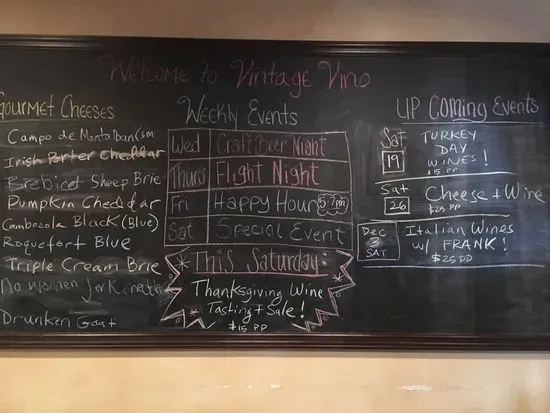 Welcome to Vintage Vino
Gourmet Cheeses
Campo de Montalban (sm
Irish Porter Cheddar
Brebicet Sheep Brie
Pumpkin Cheddar
Cambozola Black (Blue)
Roquefort Blue
Triple Cream Brie
No Women Jerk
Drunken Goat
Weekly Events
Wed Craft Beer Night
Thurs Flight Night
Fri Happy Hour 5-7pm
Sat Special Event
* This Saturday:
Thanksgiving Wine
* Tasting + Sale!
$15 PP
UPComing Events
Sat 19
TURKEY
DAY
WINES!
$15 PP
Sat 26
Cheese + Wine
$25 PP
Dec 3 SAT
Italian Wines
w/ FRANK!
$25 PP